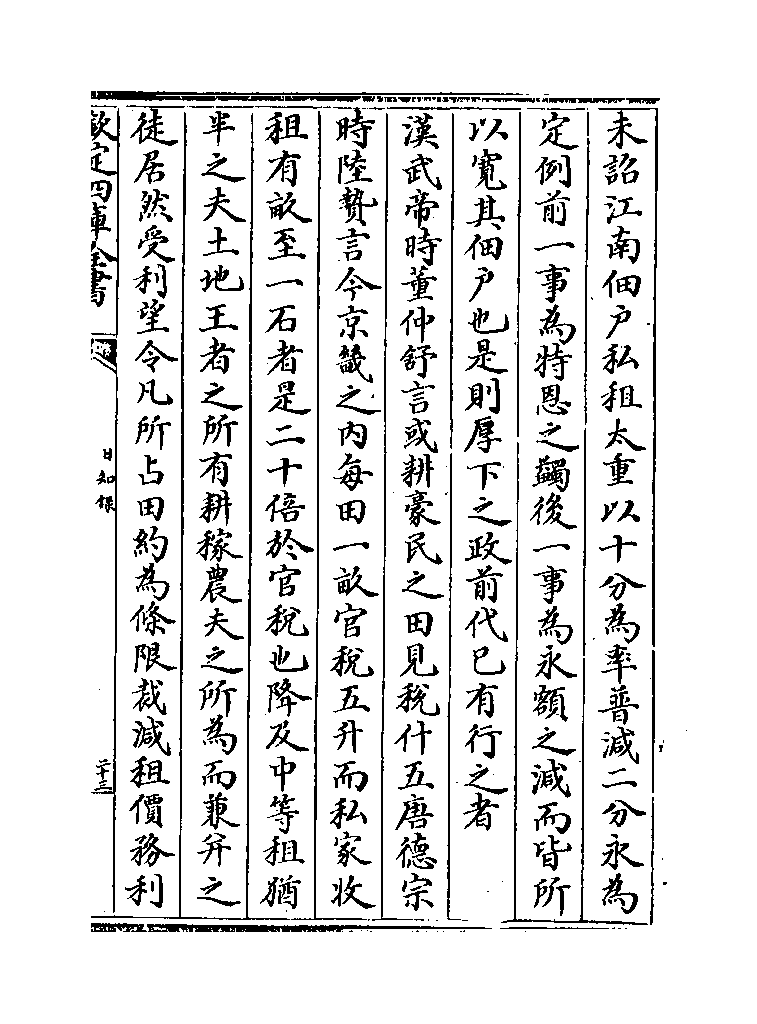 未詔江南佃户私租太重以十分為率普減二分永為
定例前一事為特恩之蠲後一事為永額之減而皆所
以寛其佃户也是則厚下之政前代已有行之者
漢武帝時董仲舒言或耕豪民之田見稅什五唐德宗
時陸贄言今京畿之内每田一畝官稅五升而私家收
租有畝至一石者是二十倍於官稅也降及中等租猶
半之夫土地王者之所有耕稼農夫之所為而兼并之
徒居然受利望令凡所占田約為條限裁減租價務利
欽定四庫全書
日知録
二十三